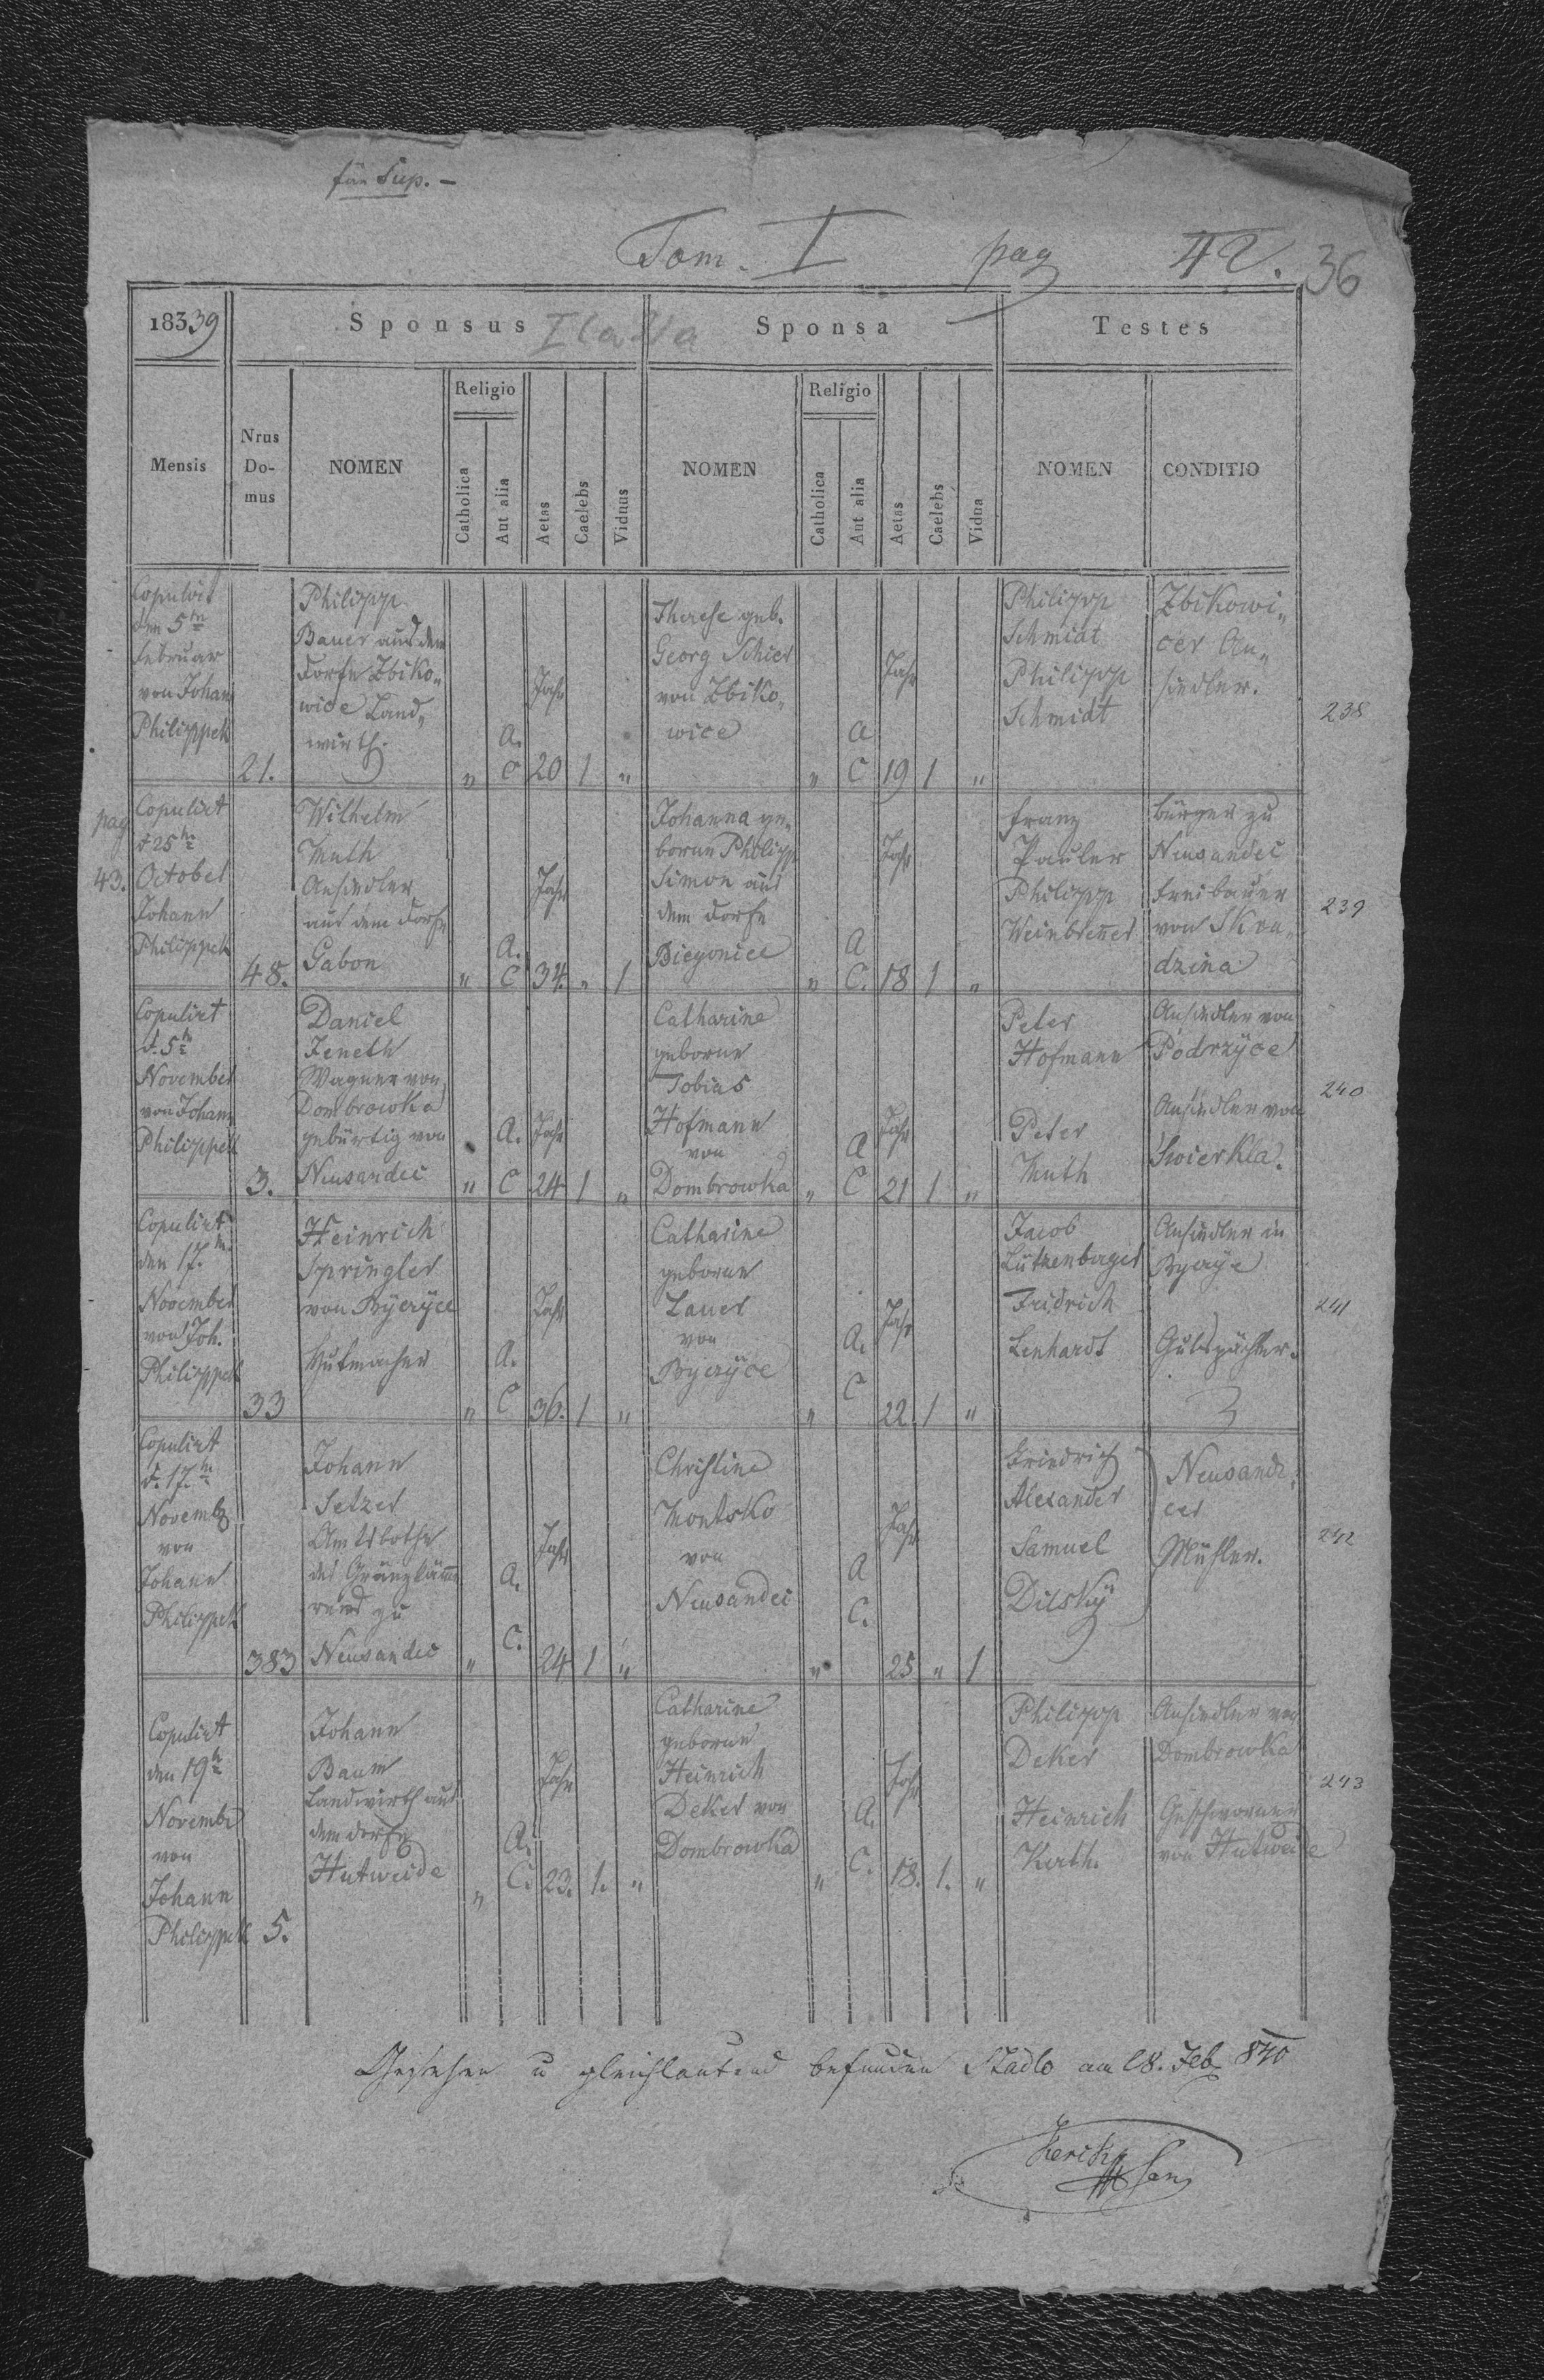 für Sup. –
Tom. I pag 42. 36
1839 Sponsus Sponsa Testes
Mensis
Nrus Do-
mus
NOMEN
Religio
Catholica
Aut alia
Aetas
Caelebs
Viduus
NOMEN
Religio
Catholica
Aut alia
Aetas
Caelebs
Vidua
NOMEN
CONDITIO
Copulirt
den 5tn
Februar
von Johan
Philippek
21.
Philipp
Bauer aus dem
Dorfe Zbiko„
wice Land„
wirth.
„ A. C Jahr 20 1 „
Therese geb.
Georg Schier
von Zbiko„
wice
„ A C Jahr 19 1 „
Philipp
Schmidt
Philipp
Schmidt
Zbikowi„
cer An„
siedler.
238
pag
43.
Copulirt
d 25tn
October
Johann
Philippek
48.
Wilhelm
Muth
Ansiedler
aus dem Dorfe
Gabon
„ A. C Jahr 34. „ 1
Johanna ge„
borne Philipp
Simon aus
dem Dorfe
Biegonice
„ A C. Jahr 18 1 „
Franz
Pauler
Philipp
Weinbrener
bürger zu
Neusandec
Freibauer
von Skra„
dzina
239
Copulirt
d. 5tn
November
von Johann
Philippek
3.
Daniel
Jeneth
Wagner von
Dombrowka
gebürtig von
Neusandec
„ A. C Jahr 24 1 „
Catharine
geborne
Tobias
Hofmann
von
Dombrowka
„ A C Jahr 21 1 „
Peter
Hofmann
Peter
Muth
Ansiedler von
Podrzyce
Ansiedler von
Swierkla.
240
Copulirt
den 17.tn
November
von Joh.
Philippek
33
Heinrich
Springler
von Byczyce
Hutmacher
„ A. C Jahr 36. 1 „
Catharine
geborne
Lauer
von
Byczyce
„ A. C Jahr 22. 1 „
Jacob
Lützenberger
Fridrich
Lenhardt
Ansiedler in
Byczyce
Gutspächter.
241
Copulirt
d. 17.tn
Novemb
von
Johann
Philippek
383
Johann
Setzer
Amtsbothe
zu
Neusandec
„ A. C. Jahr 24 1 „
Christine
Montsko
von
Neusandec
„ A C. Jahr 25 „ 1
Friedrich
Alexander
Samuel
Dilsky
Neusand:
cer
Müßler.
242
Copulirt
den 19tn
Novembr
von
Johann
Philippek
5.
Johann
Baum
Landwirth aus
dem Dorfe
Hutweide
„ A. C. Jahr 23. 1. „
Catharine
geborne
Heinrich
Deker von
Dombrowka
„ A. C. Jahr 18. 1. „
Philipp
Deker
Heinrich
Kerth.
Ansiedler von
Dombrowka
Geschworner
von Hutweide
243
Gesehen u gleichlautend befunden Stadlo am 28. Feb 840
Sen